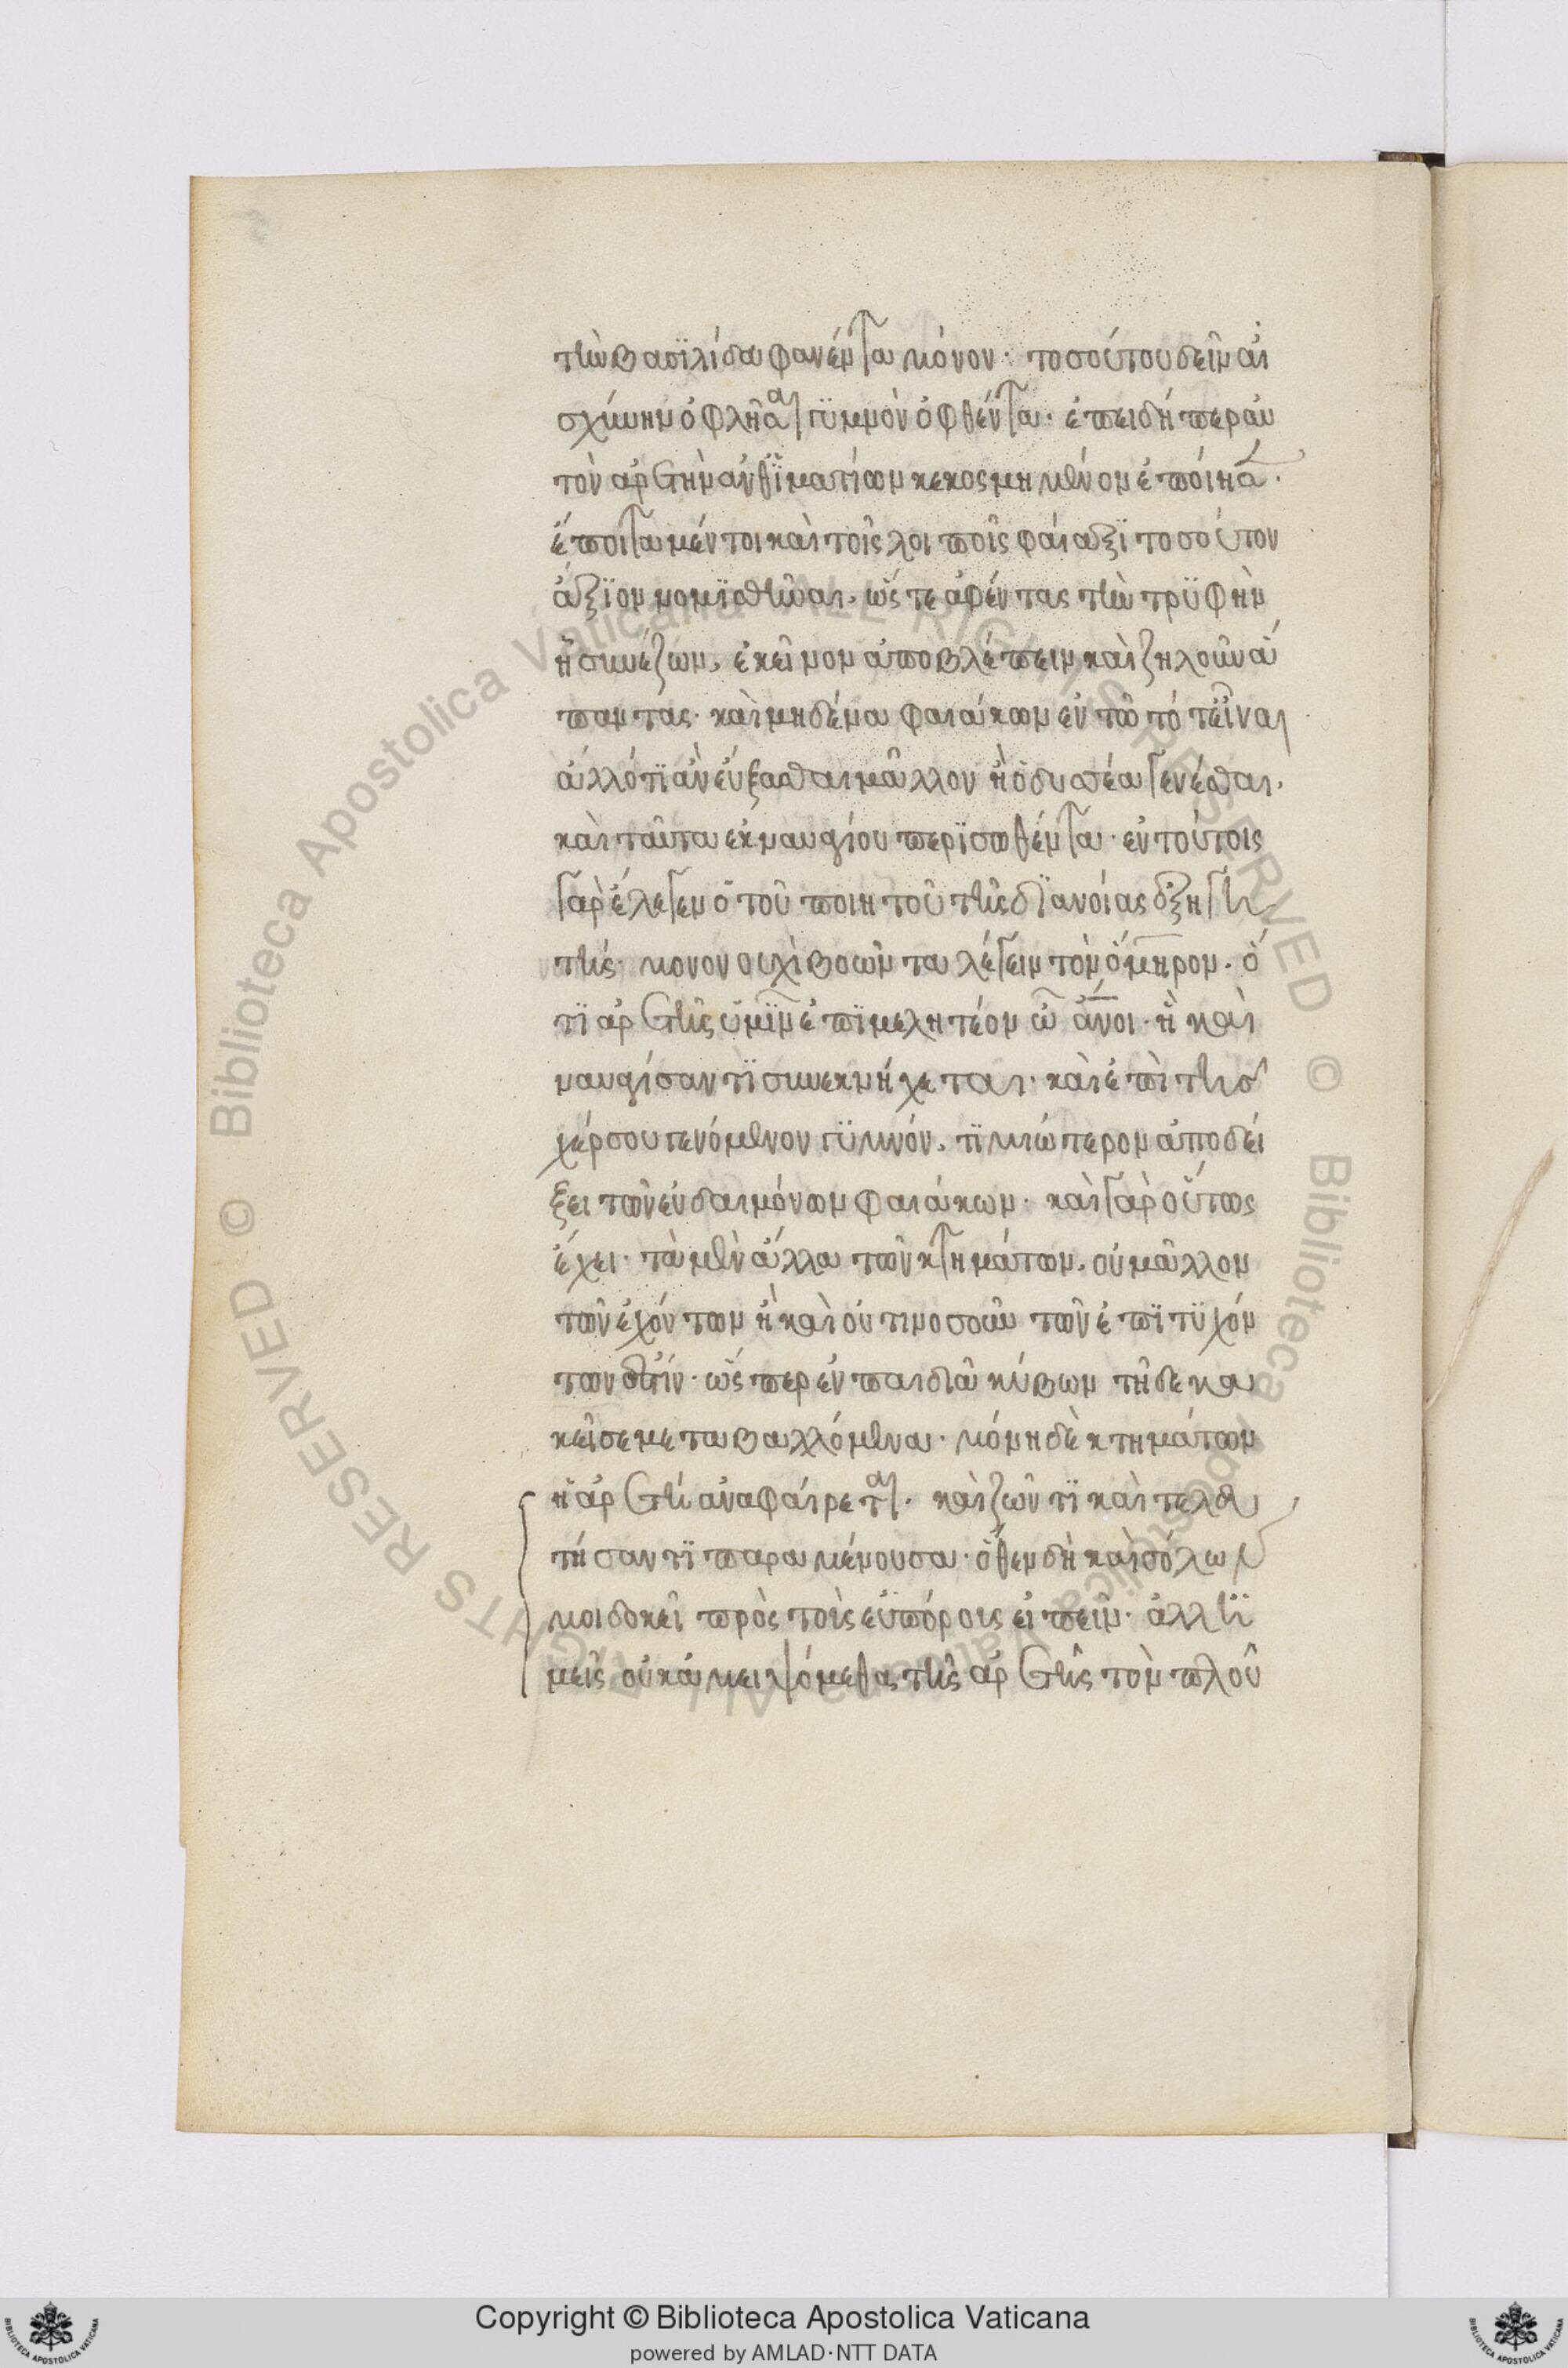 τὴν βασιλίδα φανέντα μόνον· τοσούτου δεῖν αἰ
σχύνην ὀφλῆσαι γυμνὸν ὀφθέντα· ἐπειδήπερ αὐ
τὸν ἀρετὴν ἀνθ' ἱματίων κεκοσμημένον ἐποίησε·
ἔπειτα μέν τοι καὶ τοῖς λοιποῖς φαίαξι τοσούτου
ἄξιον νομισθῆναι, ὥστε ἀφέντας τὴν τρυφὴν
ᾗ συνέζων, ἐκεῖνον ἀποβλέπειν καὶ ζηλοῦν ἅ
παντας· καὶ μηδένα φαιάκων ἐν τῷ τότε εἶναι
ἄλλό τι ἂν εὔξασθαι μᾶλλον ἢ ὀδυσσέα γενέσθαι,
καὶ ταῦτα ἐκ ναυαγίου περισωθέντα· ἐν τούτοις
γὰρ ἔλεγεν ὁ τοῦ ποιητοῦ τῆς διανοίας ἐξηγη
τής· μονονουχὶ βοῶντα λέγειν τὸν ὅμηρον. ὅ
τι ἀρετῆς ὑμῖν ἐπιμελητέον ὦ ἄνοι· ἣ καὶ
ναυαγήσαντι συνεκνήχεται· καὶ ἐπὶ τῆς
χέρσου γενόμενον γυμνόν, τιμιώτερον ἀποδεί
ξει τῶν εὐδαιμόνων φαιάκων· καὶ γὰρ οὕτως
ἔχει· τὰ μὲν ἄλλα τῶν κτημάτων, οὐ μᾶλλον
τῶν ἐχόντων ἢ καὶ οὑτινοσοῦν τῶν ἐπιτυχόν
των ἐστίν· ὥσπερ ἐν παιδιᾷ κύβων τῇδε κα
κεῖσε μεταβαλλόμενα· μόνη δὲ κτημάτων
ἡ ἀρετὴ ἀναφαίρεται· καὶ ζῶντι καὶ τελευ
τήσαντι παραμένουσα· ὅθεν δὴ καὶ σόλων
μοι δοκεῖ πρὸς τοὺς εὐπόρους εἰπεῖν· ἀλλ' ἡ
μεῖς οὐκ ἀμειψόμεθα τῆς ἀρετῆς τὸν πλοῦ
Copyright © Biblioteca Apostolica Vaticana
powered by AMLAD·NTT DATA